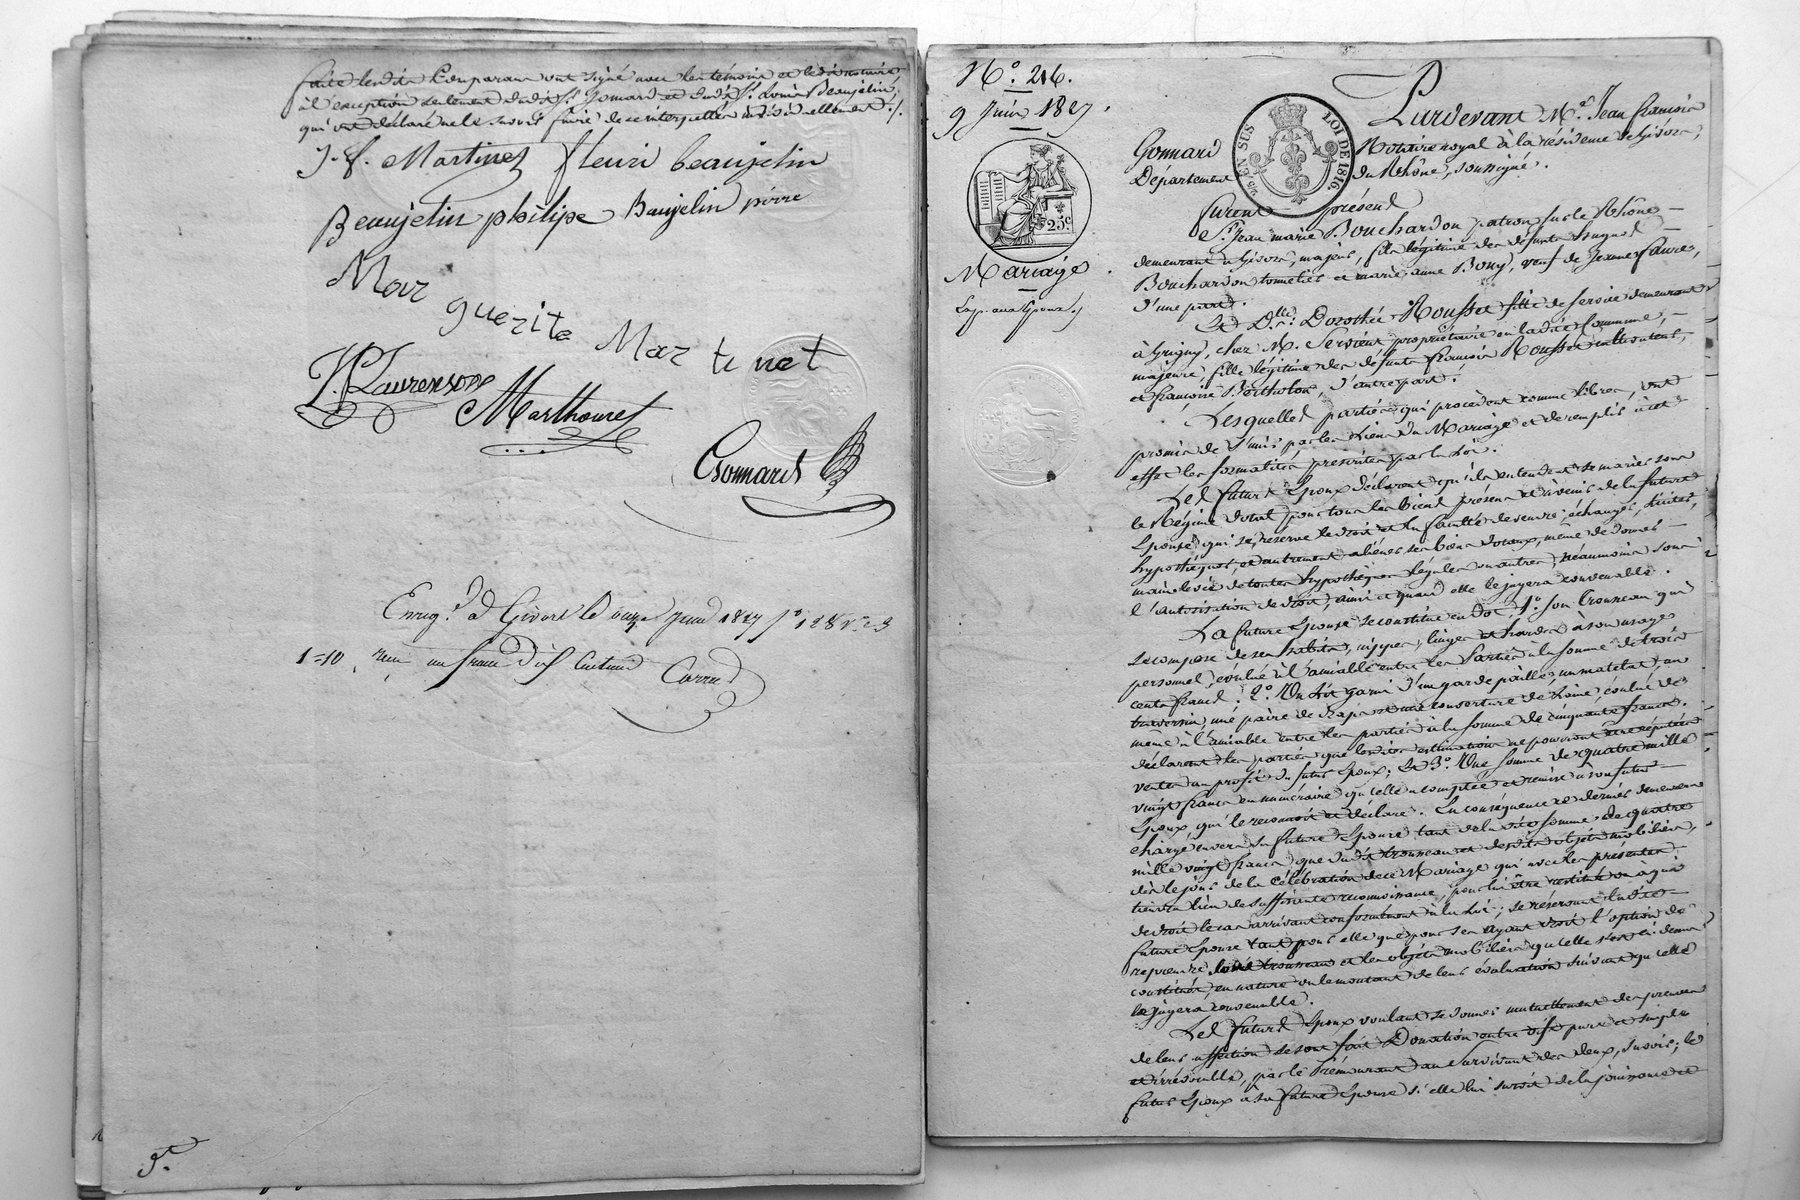 faite lesdits Comparans ont signé avec les témoins et ledit notaire,
à l'exception seulement dudit Sr. Gonard et dudit Sr. Louis Beaujelin,
qui ont déclaré ne le savoir faire de ce interpellés individuellement ./.
J. f. Martinet fleuri beaujelin
Beaujelin philipe Baujelin pierre
Mar
guerite Mar te net
Laurenson
Marthouret
Gonnard
Enreg.é à Givors le onze Juin 1827 f.o 128 v.o c 3
1=10. reçu un franc dix centimes
5.e
N.o 216.
9 Juin 1827.
EN SUS LOI DE 1816.
25.c
Mariage
Exp. aux Epoux ./
Pardevant M.e Jean François
Gonnard Notaire royal à la résidence de Givors,
Département du Rhône, soussigné.
Furent présens
S.r Jean marie Bouchardon patron sur le Rhône
demeurant à Givors, majeur, fils légitime des défunts hugues
Bouchardon tonnelier et marie anne Bony, veuf de Jeanne faure,
d'une part.
Et D.lle Dorothée Rousset fille de service demeurant
à Grigny, chez M. Servient, propriétaire en ladite Commune,
majeure, fille légitime des défunts françois Rousset
et françoise Bertholon, d'autre part.
Lesquelles parties qui procèdent comme libres, ont
promis de s'unir par les liens du Mariage et de remplir à cet
effet les formalités prescrites par la Loi.
Les futurs Epoux déclarent qu'ils entendent se marier sous
le Régime dotal pour tous les biens présens et à venir de la future
Epouse, qui se réserve le droit et la faculté de vendre, échanger,
hypothéquer, et autrement aliéner ses biens dotaux, même de donner
main levée de toutes hypothèques légales ou autres, néanmoins sous
l'autorisation de droit, ainsi et quand elle le jugera convenable.
La future Epouse se constitue en Dot, 1.o son trousseau qui
se compose de ses habits, nippes, linges et hardes à son usage
personnel, évalué à l'amiable entre les parties à la somme de trois
cents francs. 2.o Un Lit garni d'un garde paille, un matelat, un
traversin, une paire de draps et une couverture de laine, évalué de
même à l'amiable entre les parties à la somme de cinquante francs.
déclarent les parties que lesdites estimations ne pourront être réputées
vente au profit du futur Epoux; Et 3.o Une somme de quatre mille
vingt francs en numéraire qu'elle a comptée et remise à son futur
Epoux, qui le reconnoit et déclare. En conséquence ce dernier demeurera
chargé envers sa future Epouse tant de la dite somme de quatre
mille vingt francs que du dit trousseau et desdits objets mobiliers,
dès le jour de la célébration de ce Mariage qui avec les présentes
tiendra lieu de suffisante reconnoissance, pour lui être restitué ou à qui
de droit le cas arrivant conformément à la Loi; se réservant ladite
future Epouse tant pour elle que pour ses ayant droit l'option de
reprendre ledit trousseau et les objets mobiliers qu'elle s'est ci-dessus
constitués, en nature ou le montant de leur évaluation suivant qu'elle
le jugera convenable.
Les futurs Epoux voulant se donner mutuellement des preuves
de leur affection se sont fait Donation entre vifs pure et simple
et irrévocable, par le prémourant au Survivant des deux, savoir; le
futur Epoux à sa future Epouse si elle lui survit de la jouissance